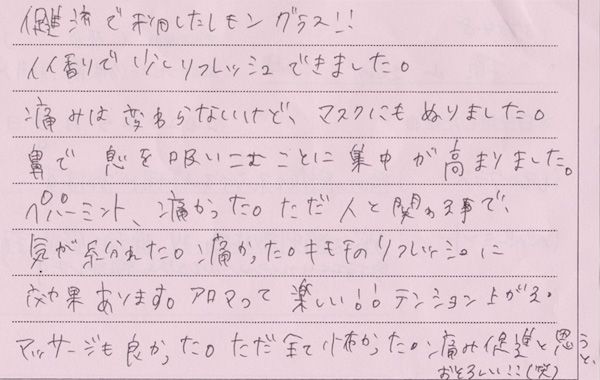 促進済で利用したレモングラス!!
イイ香りで少しリフレッシュできました。
痛みは変わらないけど、マスクにもぬりました。
鼻で息を吸いこむことに集中が高まりました。
ペパーミント、痛かった。ただ人と関わる事で、
気が紛れた。痛かったキモチのリフレッシュに
効果あります。アロマって楽しい!!テンション上がる。
マッサージも良かった。ただ全て怖かった。痛み促進と思うと、
おそろしい!!(笑)